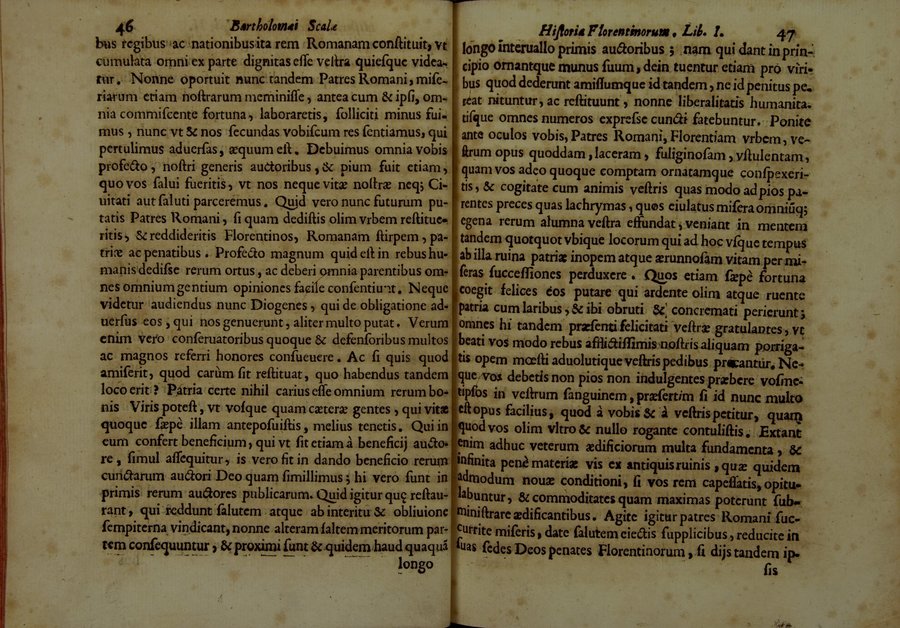 46 Bartholomæi Scalæ
bus regibus ac nationibus ita rem Romanam conſtituit, vt
cumulata omni ex parte dignitas eſſe veſtra quieſque videa-
tur. Nonne oportuit nunc tandem Patres Romani, miſe-
riarum etiam noſtrarum meminiſſe, antea cum & ipſi, om-
nia commiſcente fortuna, laboraretis, ſolliciti minus fui-
mus, nunc vt & nos ſecundas vobiſcum res ſentiamus, qui
pertulimus aduerſas, æquum eſt. Debuimus omnia vobis
profecto, noſtri generis auctoribus, & pium fuit etiam,
quo vos ſalui fueritis, vt nos neque vitæ noſtræ neq; Ci-
uitati aut ſaluti parceremus. Quid vero nunc futurum pu-
tatis Patres Romani, ſi quam dediſtis olim vrbem reſtitue-
ritis, & reddideritis Florentinos, Romanam ſtirpem, pa-
triæ ac penatibus. Profecto magnum quid eſt in rebus hu-
manis dediſse rerum ortus, ac deberi omnia parentibus om-
nes omnium gentium opiniones facile conſentiunt. Neque
videtur audiendus nunc Diogenes, qui de obligatione ad-
uerſus eos, qui nos genuerunt, aliter multo putat. Verum
enim vero conſeruatoribus quoque & defenſoribus multos
ac magnos referri honores conſueuere. Ac ſi quis quod
amiſerit, quod carùm ſit reſtituat, quo habendus tandem
loco erit? Patria certe nihil carius eſſe omnium rerum bo-
nis Viris poteſt, vt voſque quam cæteræ gentes, qui vitæ
quoque ſæpè illam antepoſuiſtis, melius tenetis. Qui in
eum confert beneficium, qui vt ſit etiam à beneficij aucto-
re, ſimul aſſequitur, is vero fit in dando beneficio rerum
cunctarum auctori Deo quam ſimillimus; hi vero ſunt in
primis rerum auctores publicarum. Quid igitur quę reſtau-
rant, qui reddunt ſalutem atque ab interitu & obliuione
ſempiterna vindicant, nonne alteram ſaltem meritorum par-
tem conſequuntur, & proximi ſunt & quidem haud quaquā
longo
Hiſtoriæ Florentinorum, Lib. I. 47
longo interuallo primis auctoribus; nam qui dant in prin-
cipio ornantque munus ſuum, dein tuentur etiam pro viri-
bus quod dederunt amiſſumque id tandem, ne id penitus pe-
reat nituntur, ac reſtituunt, nonne liberalitatis humanita-
tiſque omnes numeros expreſse cuncti fatebuntur. Ponite
ante oculos vobis, Patres Romani, Florentiam vrbem, ve-
ſtrum opus quoddam, laceram, fuliginoſam, vſtulentam,
quam vos adeo quoque comptam ornatamque conſpexeri-
tis, & cogitate cum animis veſtris quas modo ad pios pa-
rentes preces quas lachrymas, quos eiulatus miſera omniūq;
egena rerum alumna veſtra effundat, veniant in mentem
tandem quotquot vbique locorum qui ad hoc vſque tempus
ab illa ruina patriæ inopem atque ærunnoſam vitam per mi-
ſeras ſucceſſiones perduxere. Quos etiam ſæpè fortuna
coegit felices eos putare qui ardente olim atque ruente
patria cum laribus, & ibi obruti & concremati perierunt;
omnes hi tandem præſenti felicitati veſtræ gratulantes, vt
beati vos modo rebus afflictiſſimis noſtris aliquam porriga-
tis opem mœſti aduolutique veſtris pedibus precantur. Ne-
que vos debetis non pios non indulgentes præbere voſme-
tipſos in veſtrum ſanguinem, præſertim ſi id nunc multo
eſt opus facilius, quod à vobis & à veſtris petitur, quam
quod vos olim vltro & nullo rogante contuliſtis. Extant
enim adhuc veterum ædificiorum multa fundamenta, &
infinita penè materiæ vis ex antiquis ruinis, quæ quidem
admodum nouæ conditioni, ſi vos rem capeſſatis, opitu-
labuntur, & commoditates quam maximas poterunt ſub-
miniſtrare ædificantibus. Agite igitur patres Romani ſuc-
currite miſeris, date ſalutem eiectis ſupplicibus, reducite in
ſuas ſedes Deos penates Florentinorum, ſi dijs tandem ip-
ſis